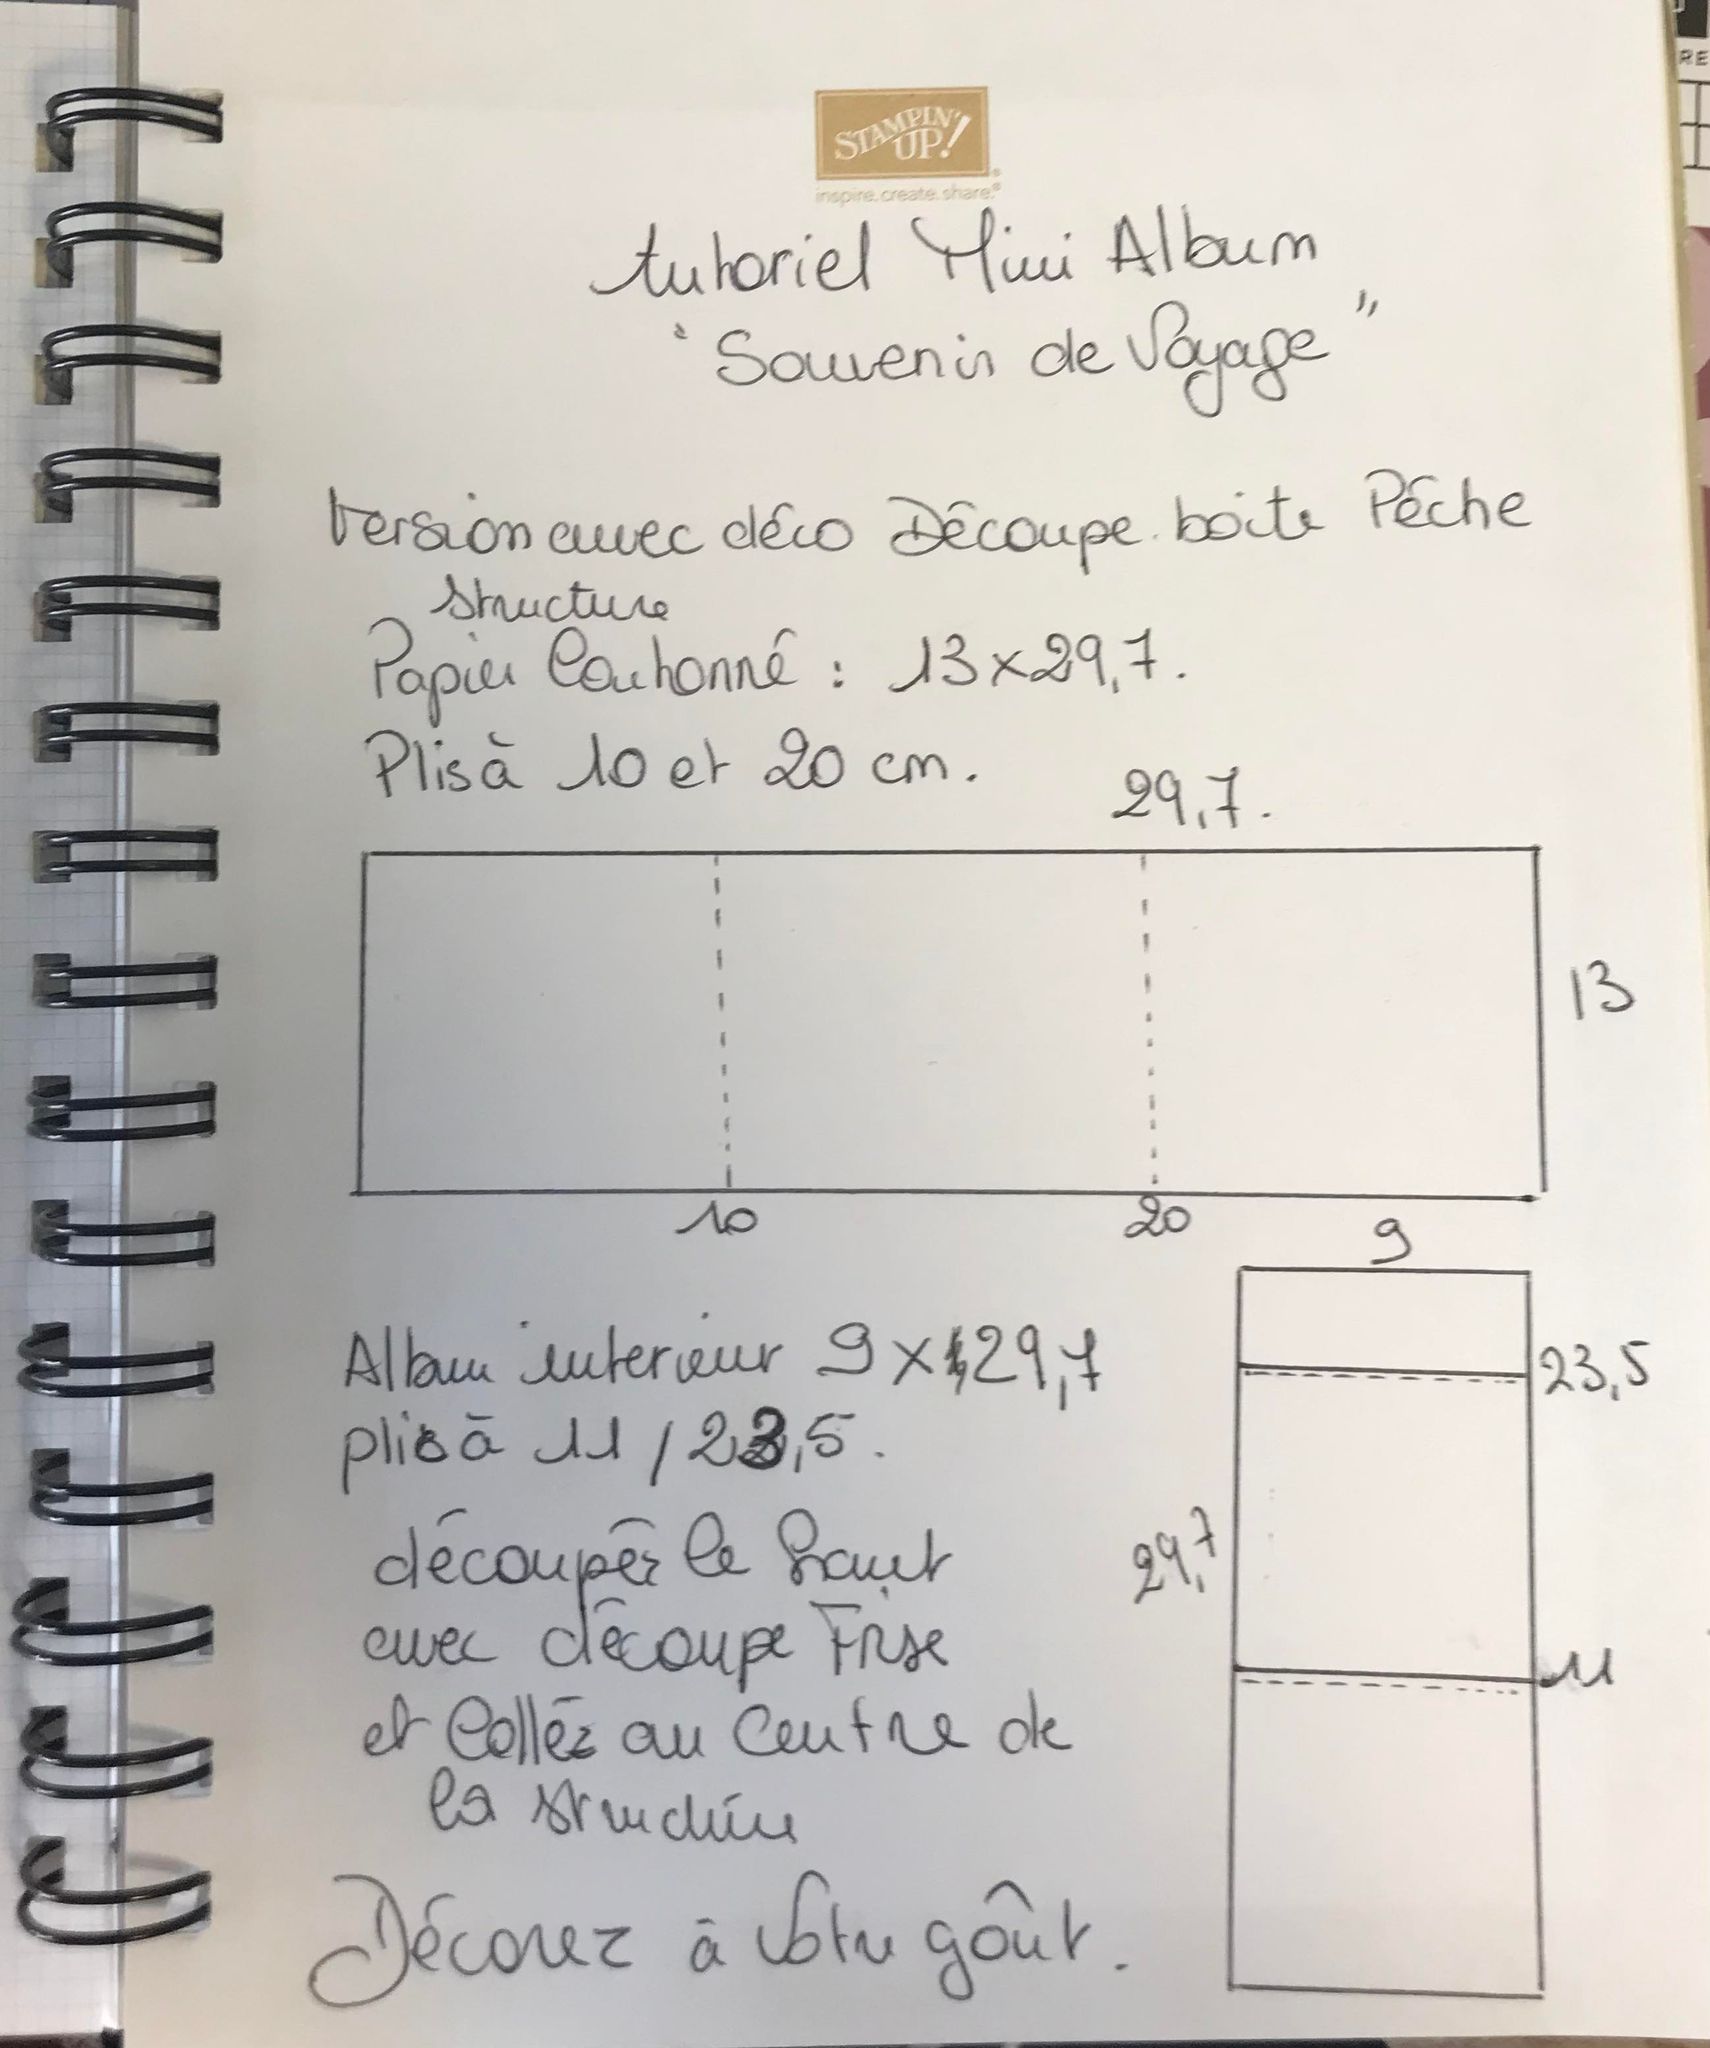 RE
STAMPIN' UP!
inspire.create.share.®
tutoriel Mini Album
"Souvenir de Voyage"
Version avec déco Découpe boite Pêche
Structure
Papier Cartonné : 13 x 29,7.
Plis à 10 et 20 cm.
29,7.
13
10 20
9
Album interieur 9 x 29,7
23,5
plis à 11 / 23,5.
découpéz le haut
29,7
avec découpe Frise
11
et Colléz au Centre de
la structure
Décorez à votre goût.